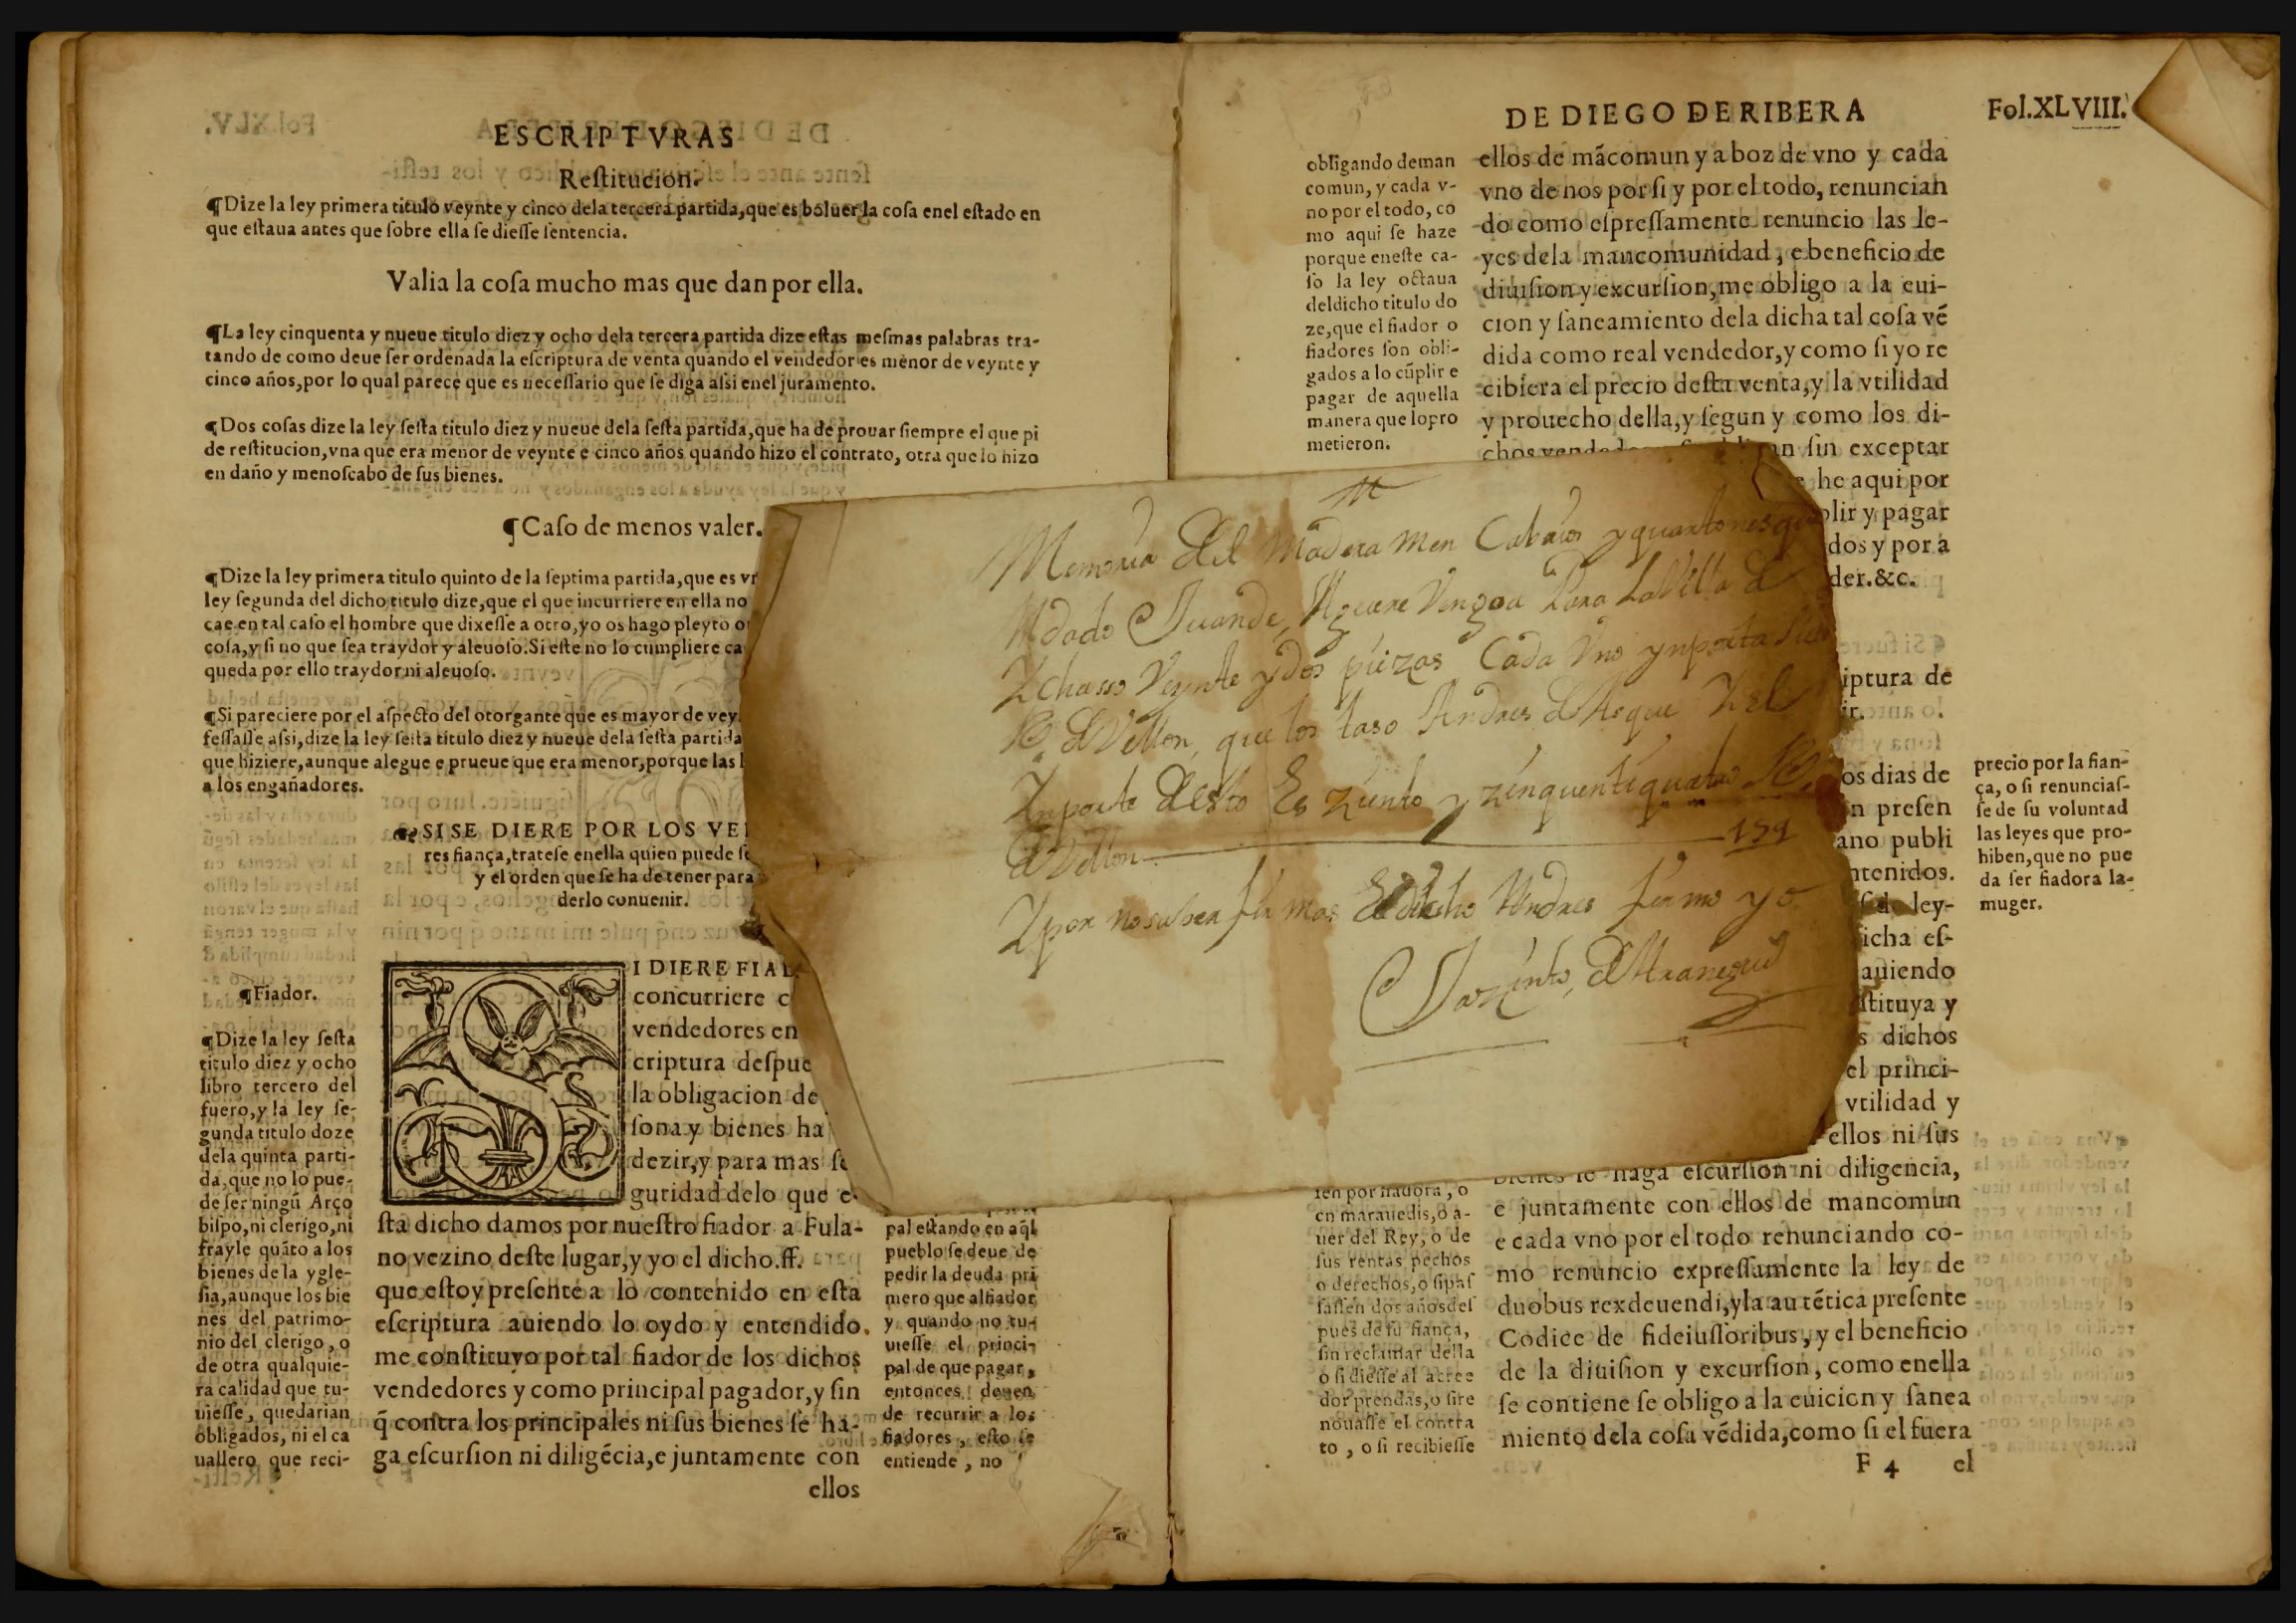 ESCRIPTVRAS
Reſtitucion.
¶Dize la ley primera titulo veynte y cinco dela tercera partida,que es boluer la coſa enel eſtado en
que eſtaua antes que ſobre ella ſe dieſſe ſentencia.
Valia la coſa mucho mas que dan por ella.
¶La ley cinquenta y nueue titulo diez y ocho dela tercera partida dize eſtas meſmas palabras tra-
tando de como deue ſer ordenada la eſcriptura de venta quando el vendedor es menor de veynte y
cinco años,por lo qual parece que es neceſſario que ſe diga aſsi enel juramento.
¶Dos coſas dize la ley ſeſta titulo diez y nueue dela ſeſta partida,que ha de prouar ſiempre el que pi
de reſtitucion,vna que era menor de veynte e cinco años quando hizo el contrato, otra que lo hizo
en daño y menoſcabo de ſus bienes.
¶Caſo de menos valer.
¶Dize la ley primera titulo quinto de la ſeptima partida,que es
ley ſegunda del dicho titulo dize,que el que incurriere en ella no
cae en tal caſo el hombre que dixeſſe a otro,yo os hago pleyto
coſa,y ſi no que ſea traydor y aleuoſo.Si eſte no lo cumpliere
queda por ello traydor ni aleuoſo.
¶Si pareciere por el aſpecto del otorgante que es mayor de
feſſaſſe aſsi,dize la ley ſeſta titulo diez y nueue dela ſeſta partida
que hiziere,aunque alegue e prueue que era menor,porque las
a los engañadores.
SI SE DIERE POR LOS
res fiança,trateſe enella quien puede
y el orden que ſe ha de tener para
derlo conuenir.
¶Fiador.
¶Dize la ley ſeſta
titulo diez y ocho
libro tercero del
fuero,y la ley ſe-
gunda titulo doze
dela quinta parti-
da,que no lo pue-
de ſer ningũ Arço
biſpo,ni clerigo,ni
frayle quãto a los
bienes de la ygle-
ſia,aunque los bie
nes del patrimo-
nio del clerigo, o
de otra qualquie-
ra calidad que tu-
uieſſe, quedarian
obligados, ni el ca
uallero que reci-
I DIERE
concurriere
vendedores en
criptura deſpue
la obligacion de
ſona y bienes ha
dezir,y para mas
guridad delo que
ſta dicho damos por nueſtro fiador a Fula-
no vezino deſte lugar,y yo el dicho.ff.
que eſtoy preſente a lo contenido en eſta
eſcriptura auiendo lo oydo y entendido.
me conſtituyo por tal fiador de los dichos
vendedores y como principal pagador,y ſin
q̃ contra los principales ni ſus bienes ſe ha-
ga eſcurſion ni diligẽcia,e juntamente con
ellos
pal eſtando en aq̃l
pueblo ſe deue de
pedir la deuda pri
mero que al fiador
y quando no tu-
uieſſe el princi-
pal de que pagar,
entonces deuen
de recurrir a los
fiadores, eſto ſe
entiende, no
DE DIEGO DE RIBERA
Fol.XLVIII.
obligando deman
comun, y cada v-
no por el todo, co
mo aqui ſe haze
porque eneſte ca-
ſo la ley octaua
deldicho titulo do
ze,que el fiador o
fiadores ſon obli-
gados a lo cũplir e
pagar de aquella
manera que lo pro
metieron.
ellos de mãcomun y a boz de vno y cada
vno de nos por ſi y por el todo, renuncian
do como eſpreſſamente renuncio las le-
yes dela mancomunidad, e beneficio de
diuiſion y excurſion,me obligo a la eui-
cion y ſaneamiento dela dicha tal coſa vẽ
dida como real vendedor,y como ſi yo re
cibiera el precio deſta venta,y la vtilidad
y prouecho della,y ſegun y como los di-
chos ſin exceptar
he aqui por
plir y pagar
dos y por a
der.&c.
Memoria del Madera men Cabaios y quartones que
A dado Juan de Aguere Vengoa Para La Villa de
veynte y dos piezas Cada Vno ynporta siete
Rs. de Vellon, que los taso Andres de
Ynporte desto Es ziento y zinquentiquatro Rs.
de Vellon 154
Y por no saber firmar El dicho Andres firmo yo
iptura de
os dias de
n preſen
ano publi
ntenidos.
ley-
icha eſ-
auiendo
ſtituya y
s dichos
el princi-
vtilidad y
ellos ni ſus
bienes ſe haga eſcurſion ni diligencia,
e juntamente con ellos de mancomun
e cada vno por el todo renunciando co-
mo renuncio expreſſamente la ley de
duobus rexdeuendi,yla autẽtica preſente
Codice de fideiuſſoribus, y el beneficio
de la diuiſion y excurſion, como enella
ſe contiene ſe obligo a la euicion y ſanea
miento dela coſa vẽdida,como ſi el fuera
F 4 el
precio por la fian-
ça, o ſi renunciaſ-
ſe de ſu voluntad
las leyes que pro-
hiben,que no pue
da ſer fiadora la-
muger.
ſen por fiadora, o
en marauedis,o a-
uer del Rey, o de
ſus rentas pechos
o derechos,o ſi paſ
ſaſſen dos años deſ
pues de ſu fiança,
ſin reclamar della
o ſi dieſſe al acree
dor prendas,o ſi re
nouaſſe el contra
to , o ſi recibieſſe